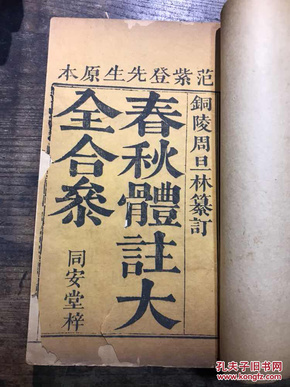 范紫登先生原本
銅陵周旦林纂訂
春秋體註大
全合叅
同安堂梓
孔夫子旧书网